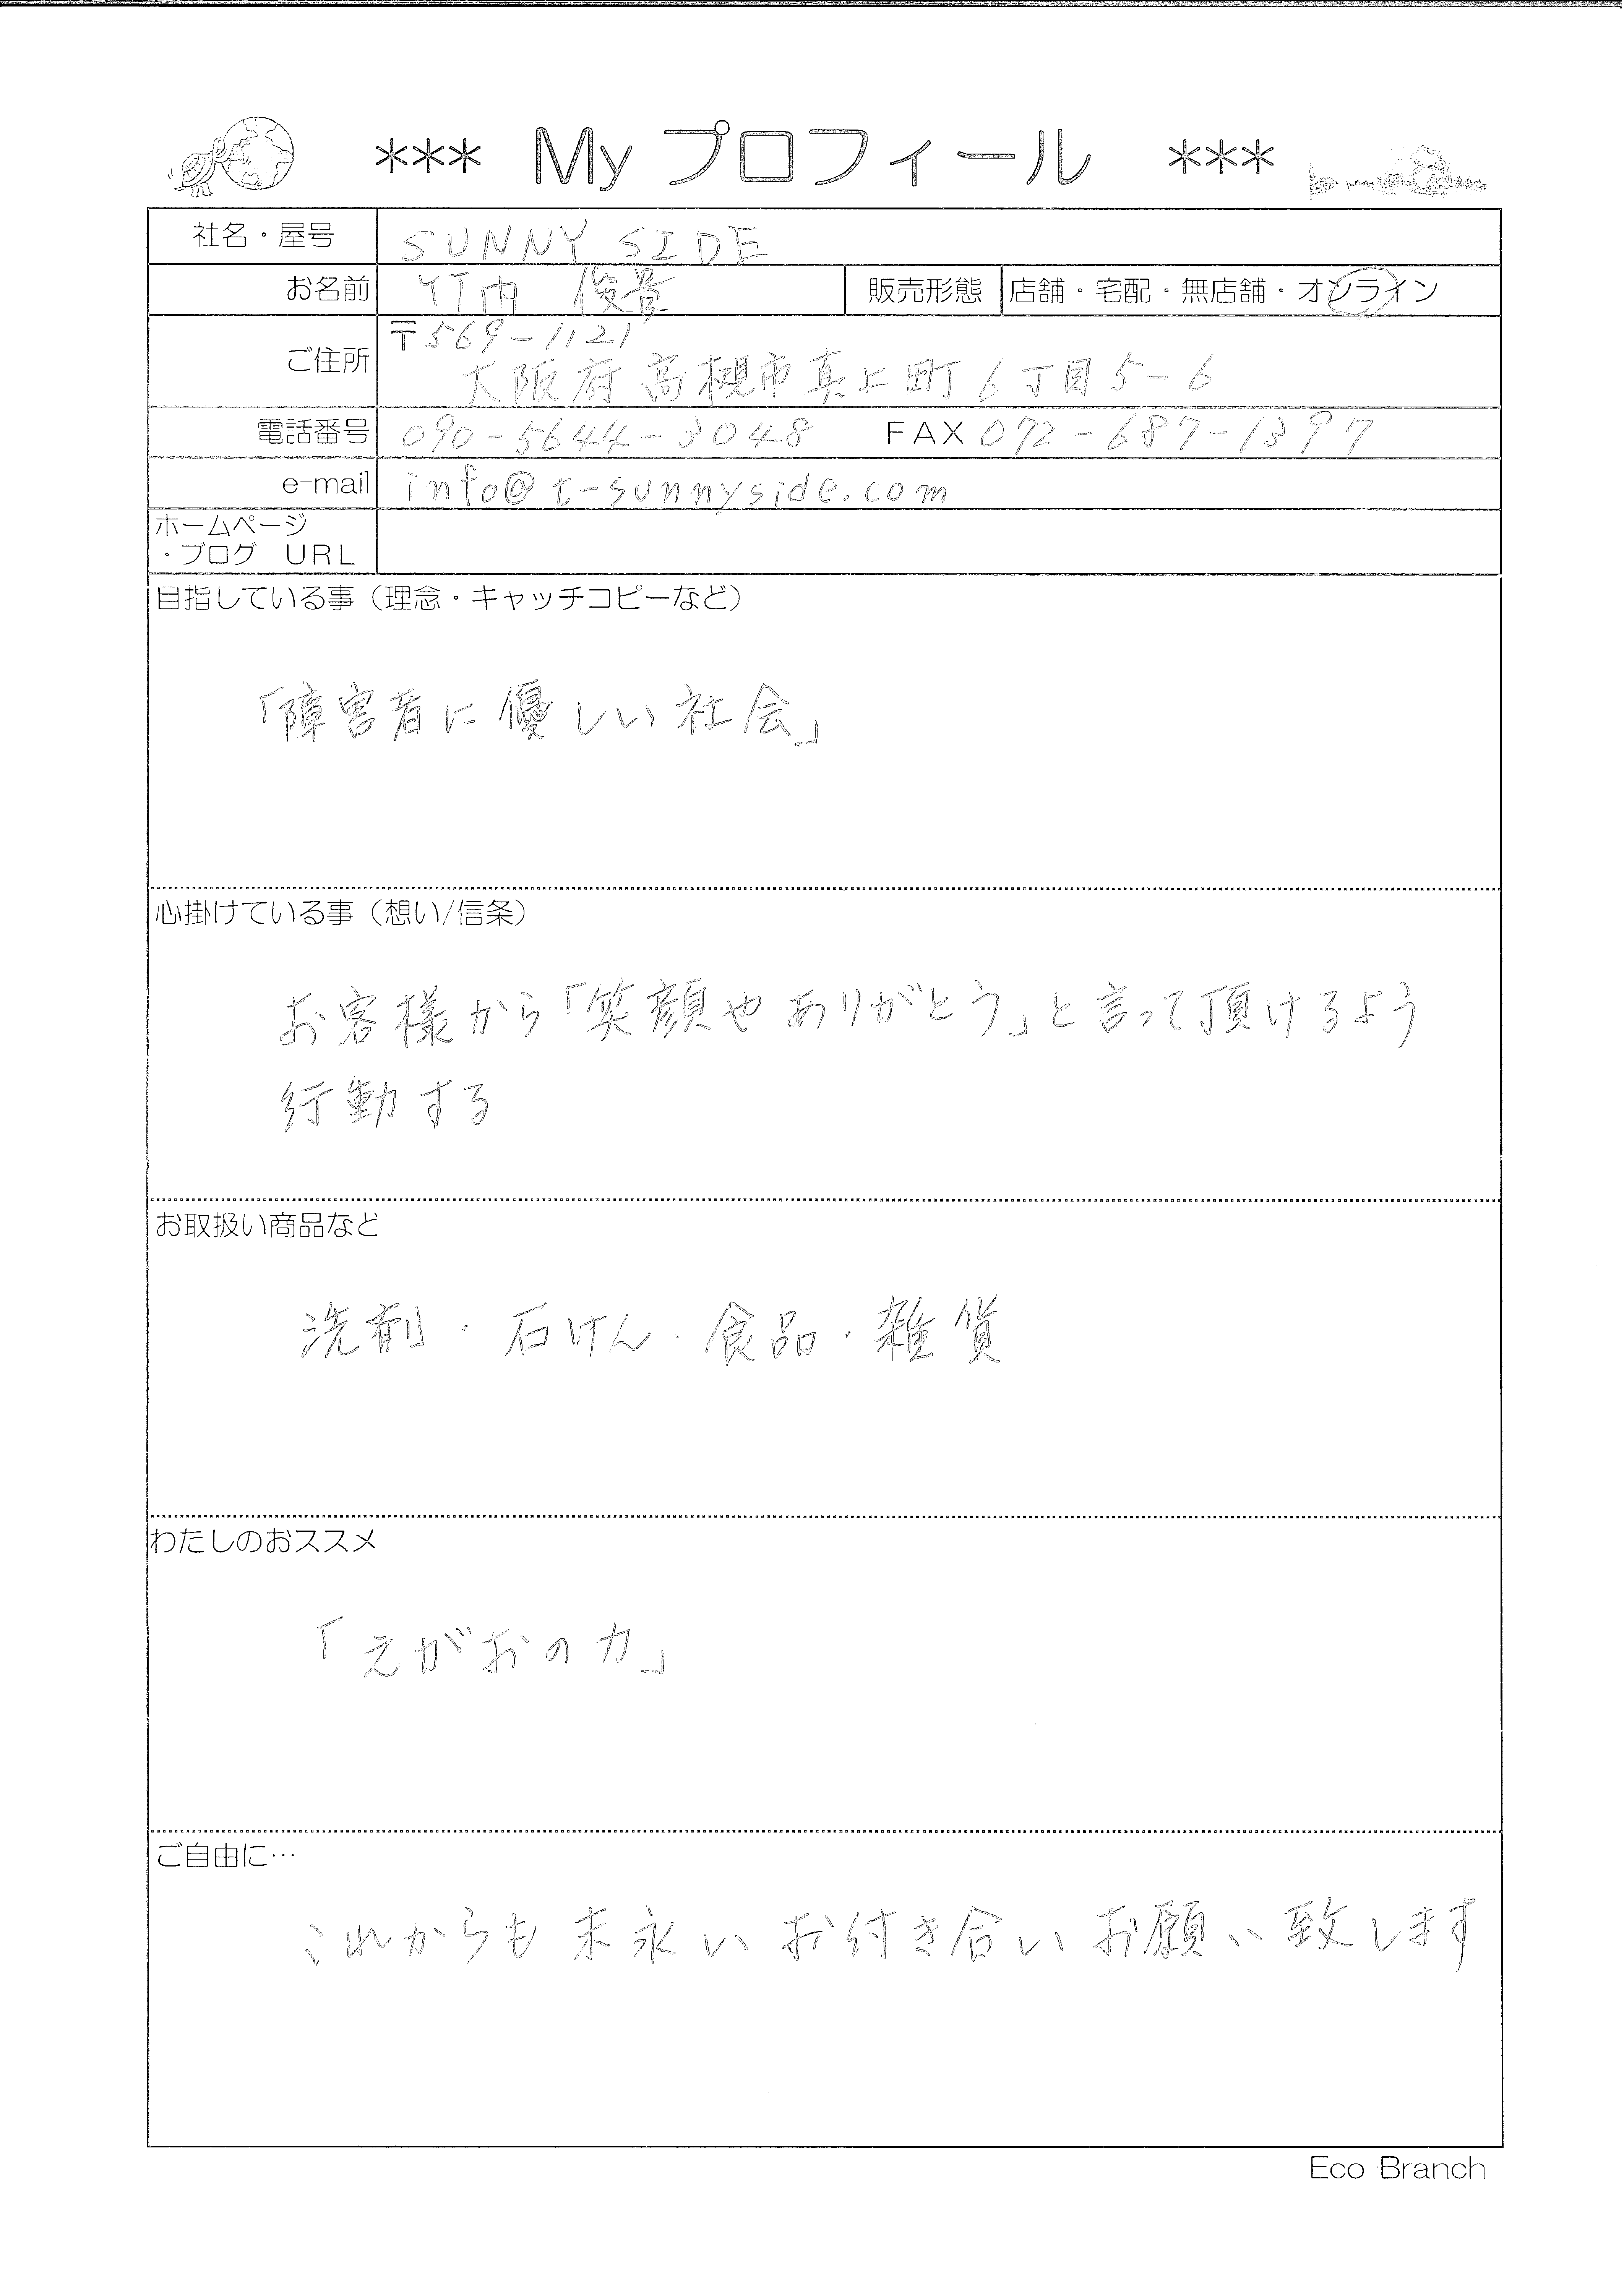 *** My プロフィール ***
社名・屋号 SUNNY SIDE
お名前 竹内 俊貴 販売形態 店舗・宅配・無店舗・オンライン
ご住所 〒569-1121
大阪府高槻市真上町6丁目5-6
電話番号 090-5644-3048 FAX 072-687-1397
e-mail info@t-sunnyside.com
ホームページ
・ブログ URL
目指している事（理念・キャッチコピーなど）
「障害者に優しい社会」
心掛けている事（想い/信条）
お客様から「笑顔やありがとう」と言って頂けるよう
行動する
お取扱い商品など
洗剤・石けん・食品・雑貨
わたしのおススメ
「えがおの力」
ご自由に…
これからも末永いお付き合いお願い致します
Eco-Branch